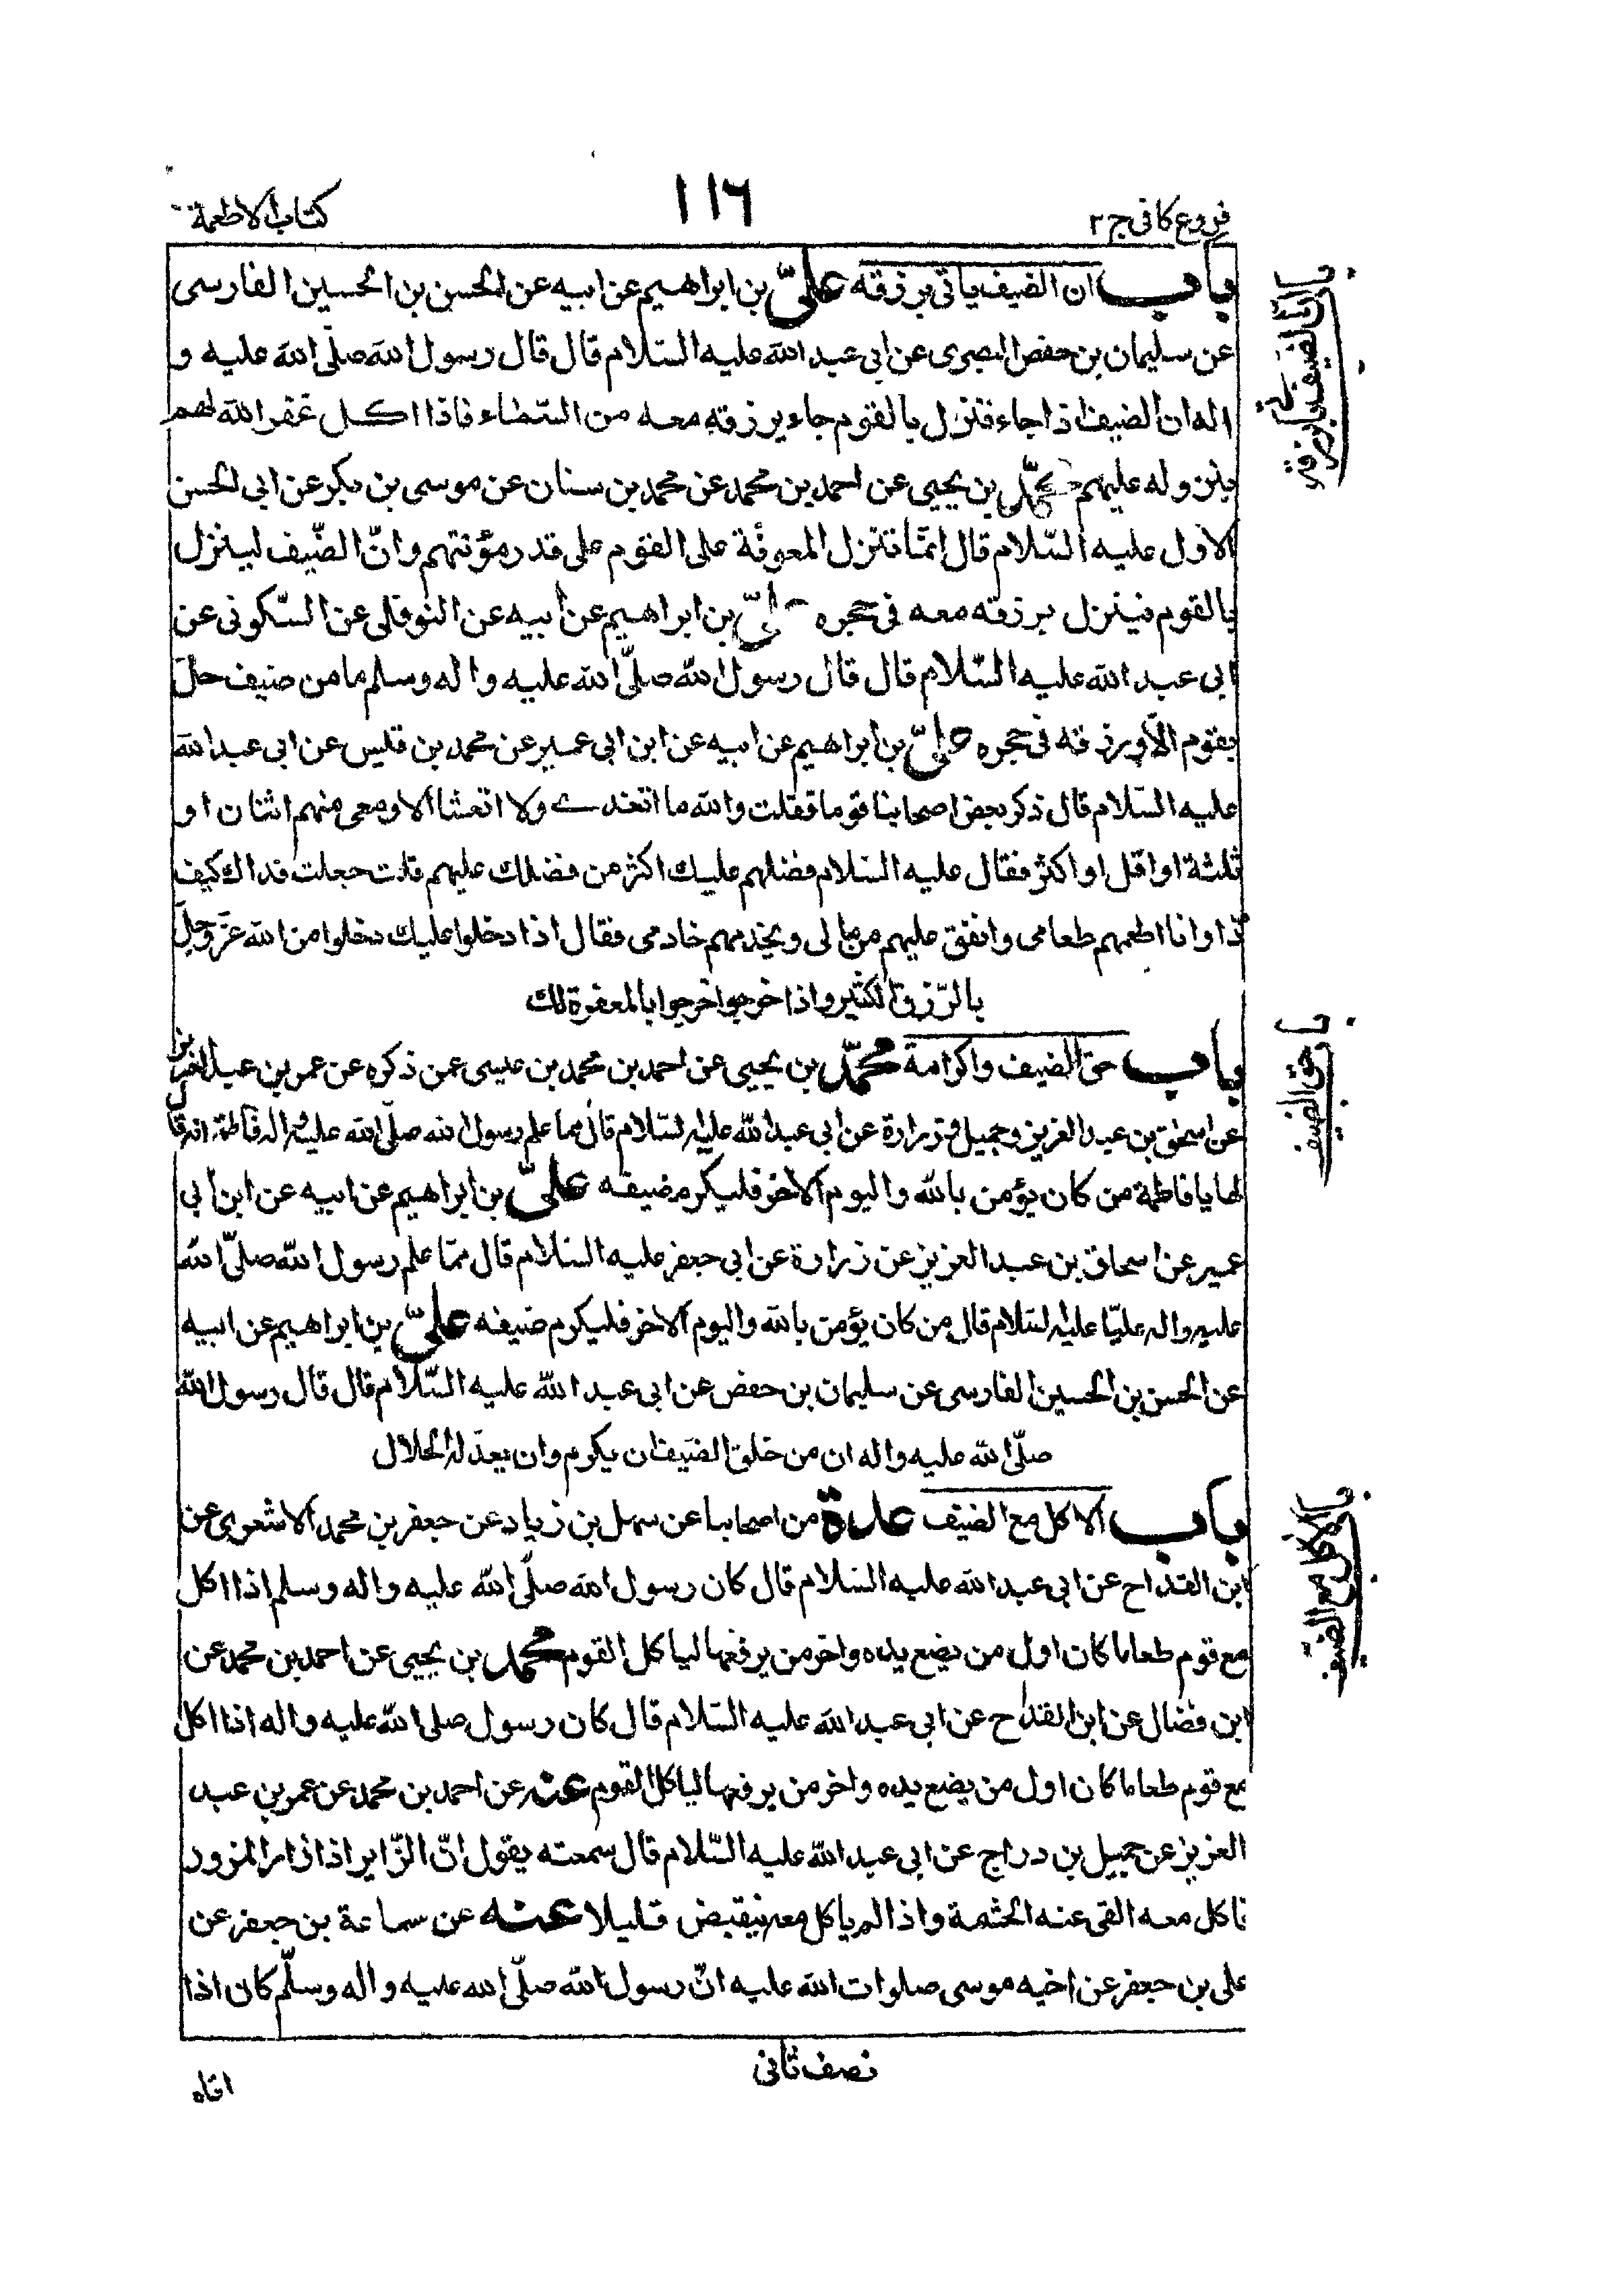 فروع كافى ج٢
١١٦
كتاب الاطعمة
باب ان الضيف ياتى برزقه علىّ بن ابراهيم عن ابيه عن الحسن بن الحسين الفارسى
عن سليمان بن حفص البصرى عن ابى عبد الله عليه السّلام قال قال رسول الله صلّى الله عليه و
اله ان الضيف اذا جاء فنزل بالقوم جاء برزقه معه من السّماء فاذا اكل غفر الله لهم
بنزوله عليهم محمّد بن يحيى عن احمد بن محمد عن محمد بن سنان عن موسى بن بكر عن ابى الحسن
الاول عليه السّلام قال انمّا تنزل المعونة على القوم على قدر مؤنتهم وانّ الضّيف لينزل
بالقوم فينزل برزقه معه فى حجره علىّ بن ابراهيم عن ابيه عن النوفلى عن السّكونى عن
ابى عبد الله عليه السّلام قال قال رسول الله صلّى الله عليه واله وسلم ما من ضيف حلّ
بقوم الّا ورزقه فى حجره علىّ بن ابراهيم عن ابيه عن ابن ابى عمير عن محمد بن قيس عن ابى عبد الله
عليه السّلام قال ذكر بعض اصحابنا قوما فقلت والله ما اتغدى ولا اتعشا الا ومعى منهم اثنان او
ثلثة او اقل او اكثر فقال عليه السّلام فضلهم عليك اكثر من فضلك عليهم قلت جعلت فداك كيف
ذا وانا اطعمهم طعامى وانفق عليهم من مالى ويخدمهم خادمى فقال اذا دخلوا عليك دخلوا من الله عزّ وجلّ
بالرّزق الكثير واذا خرجوا خرجوا بالمغفرة لك
باب حق الضيف واكرامة محمّد بن يحيى عن احمد بن محمد بن عيسى عمن ذكره عن عمر بن عبد العزيز
عن اسحق بن عبد العزيز وجميل وزرارة عن ابى عبد الله عليه السّلام قال مما علم رسول الله صلّى الله عليه واله فاطمة انه قال
لها يا فاطمة من كان يؤمن بالله واليوم الاخر فليكرم ضيفه علىّ بن ابراهيم عن ابيه عن ابن ابى
عمير عن اسحاق بن عبد العزيز عن زرارة عن ابى جعفر عليه السّلام قال ممّا علم رسول الله صلّى الله
عليه واله عليّا عليه السّلام قال من كان يؤمن بالله واليوم الاخر فليكرم ضيفه علىّ بن ابراهيم عن ابيه
عن الحسن بن الحسين الفارسى عن سليمان بن حفص عن ابى عبد الله عليه السّلام قال قال رسول الله
صلّى الله عليه واله ان من حق الضيف ان يكرم وان يعدّ له الخلال
باب الاكل مع الضيف عدة من اصحابنا عن سهل بن زياد عن جعفر بن محمد الاشعرى عن
ابن القداح عن ابى عبد الله عليه السّلام قال كان رسول الله صلّى الله عليه واله وسلم اذا اكل
مع قوم طعاما كان اول من يضع يده واخر من يرفعها لياكل القوم محمد بن يحيى عن احمد بن محمد عن
ابن فضال عن ابن القدّاح عن ابى عبد الله عليه السّلام قال كان رسول صلى الله عليه واله اذا اكل
مع قوم طعاما كان اول من يضع يده واخر من يرفعها لياكل القوم عنه عن احمد بن محمد عن عمر بن عبد
العزيز عن جميل بن دراج عن ابى عبد الله عليه السّلام قال سمعته يقول انّ الزّاير اذا زار المزور
فاكل معه القى عنه الحشمة واذا لم ياكل معه ينقبض قليلا عنه عن سماعة بن جعفر عن
على بن جعفر عن اخيه موسى صلوات الله عليه انّ رسول الله صلّى الله عليه واله وسلّم كان اذا
نصف ثانى
اتاه
باب انّ الضيف ياتى برزقه
باب حق الضيف
باب الاكل مع الضيف